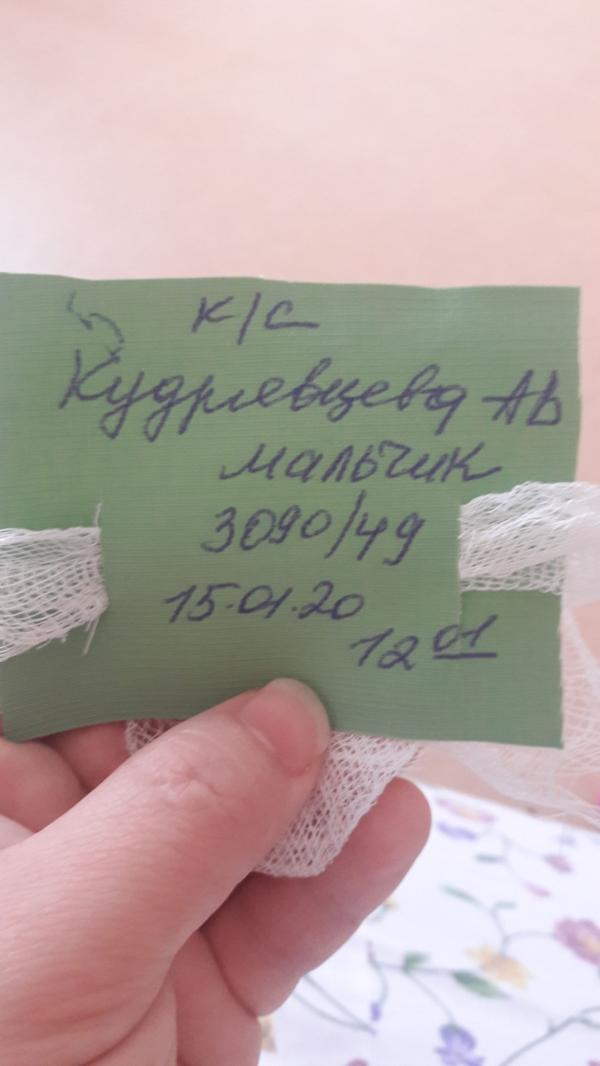 К/С
Кудрявцева АВ
мальчик
3090/49
15.01.20
12 01